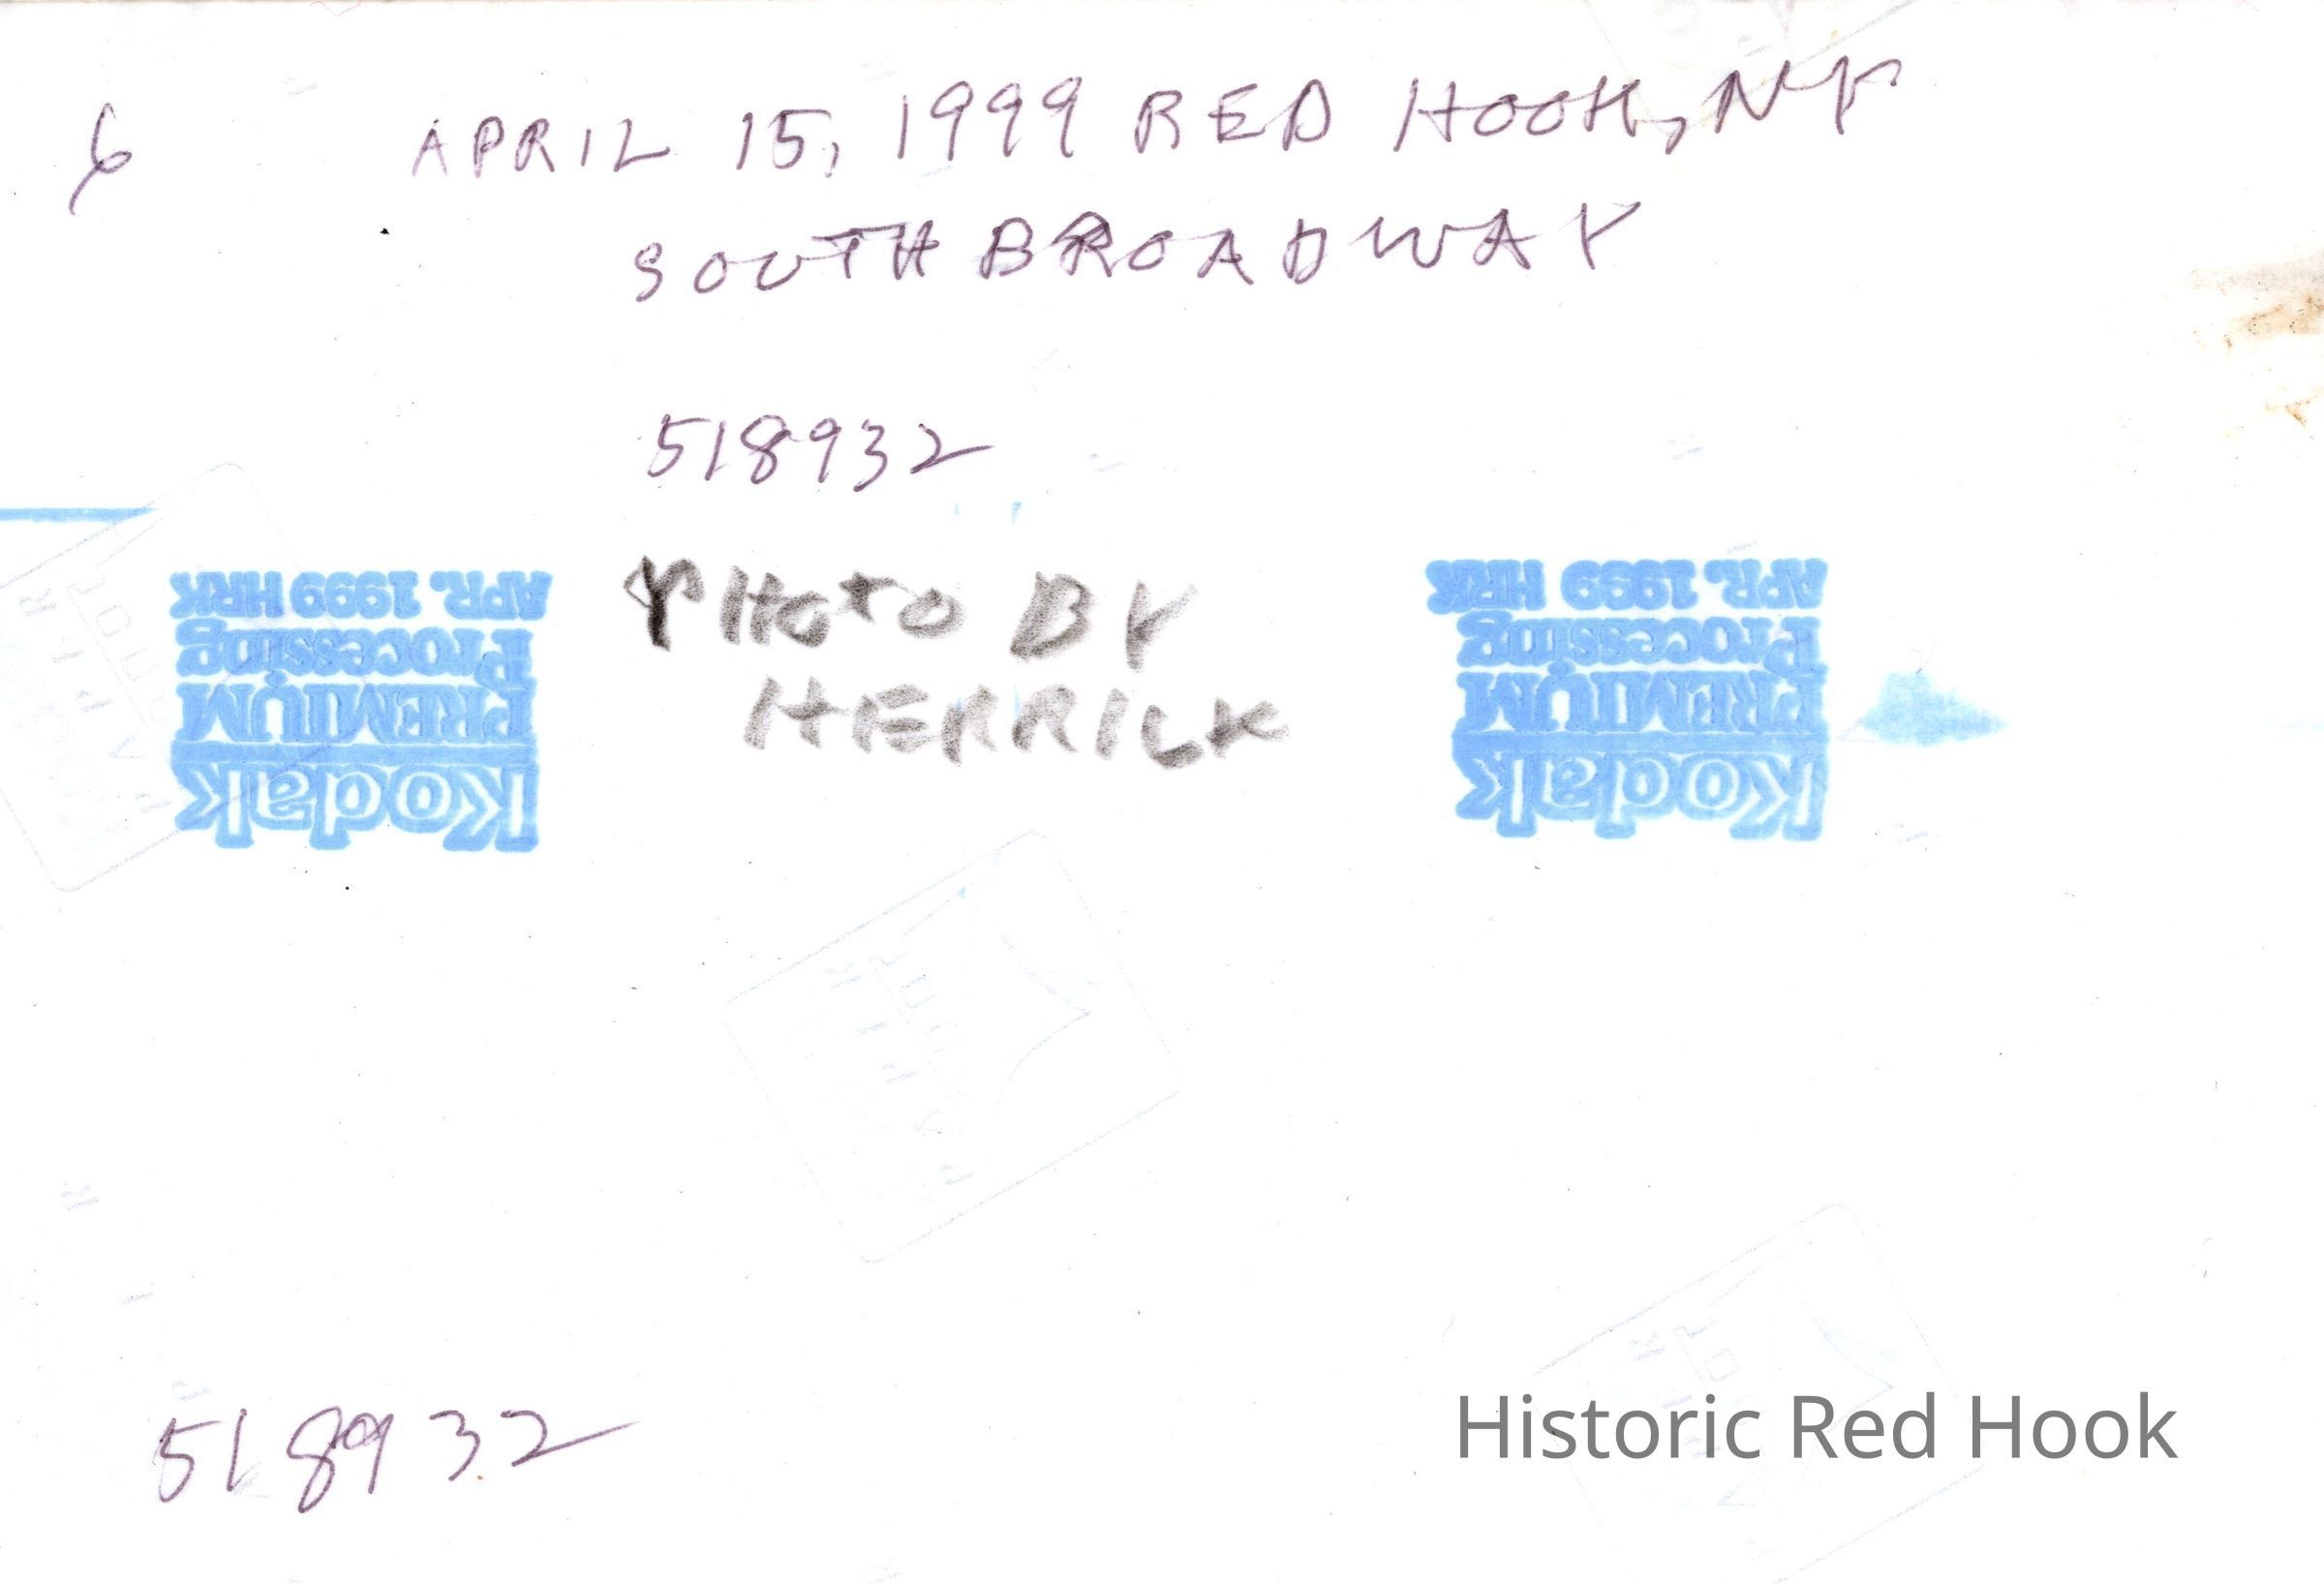 6
APRIL 15, 1999 RED HOOK, NY
SOUTH BROADWAY
518932
PHOTO BY
HERRICK
APR. 1999 HRK
Processing
PREMIUM
Kodak
APR. 1999 HRK
Processing
PREMIUM
Kodak
518932
Historic Red Hook